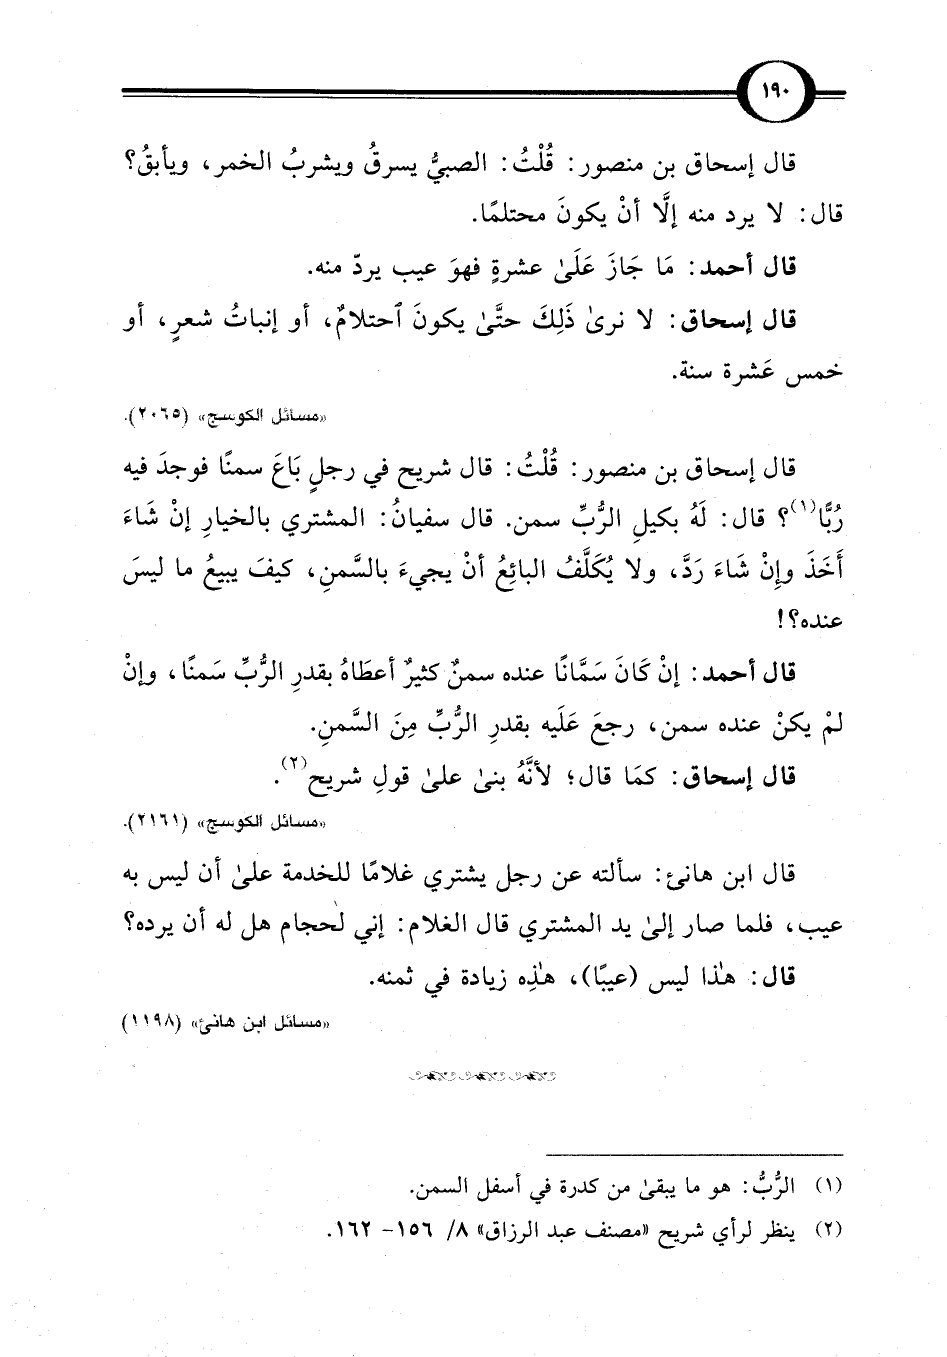 ١٩٠
قال إسحاق بن منصور: قُلْتُ: الصبيُّ يسرقُ ويشربُ الخمر، ويأبقُ؟
قال: لا يرد منه إلَّا أنْ يكونَ محتلمًا.
قال أحمد: مَا جَازَ عَلَىٰ عشرةٍ فهوَ عيب يردّ منه.
قال إسحاق: لا نرىٰ ذَلِكَ حتَّىٰ يكونَ ٱحتلامٌ، أو إنباتُ شعرٍ، أو
خمس عَشرة سنة.
«مسائل الكوسج» (٢٠٦٥).
قال إسحاق بن منصور: قُلْتُ: قال شريح في رجلٍ بَاعَ سمنًا فوجدَ فيه
رُبًّا(١)؟ قال: لَهُ بكيلِ الرُّبِّ سمن. قال سفيانُ: المشتري بالخيارِ إنْ شَاءَ
أَخَذَ وإِنْ شَاءَ رَدَّ، ولا يُكَلَّفُ البائِعُ أنْ يجيءَ بالسَّمنِ، كيفَ يبيعُ ما ليسَ
عنده؟!
قال أحمد: إنْ كَانَ سَمَّانًا عنده سمنٌ كثيرٌ أعطَاهُ بقدرِ الرُّبِّ سَمنًا، وإنْ
لمْ يكنْ عنده سمن، رجعَ عَلَيه بقدرِ الرُّبِّ مِنَ السَّمنِ.
قال إسحاق: كمَا قال؛ لأنَّهُ بنىٰ علىٰ قولِ شريح(٢).
«مسائل الكوسج» (٢١٦١).
قال ابن هانئ: سألته عن رجل يشتري غلامًا للخدمة علىٰ أن ليس به
عيب، فلما صار إلىٰ يد المشتري قال الغلام: إني لحجام هل له أن يرده؟
قال: هذا ليس (عيبًا)، هٰذِه زيادة في ثمنه.
«مسائل ابن هانئ» (١١٩٨)
(١) الرُّبُّ: هو ما يبقىٰ من كدرة في أسفل السمن.
(٢) ينظر لرأي شريح «مصنف عبد الرزاق» ٨/ ١٥٦- ١٦٢.